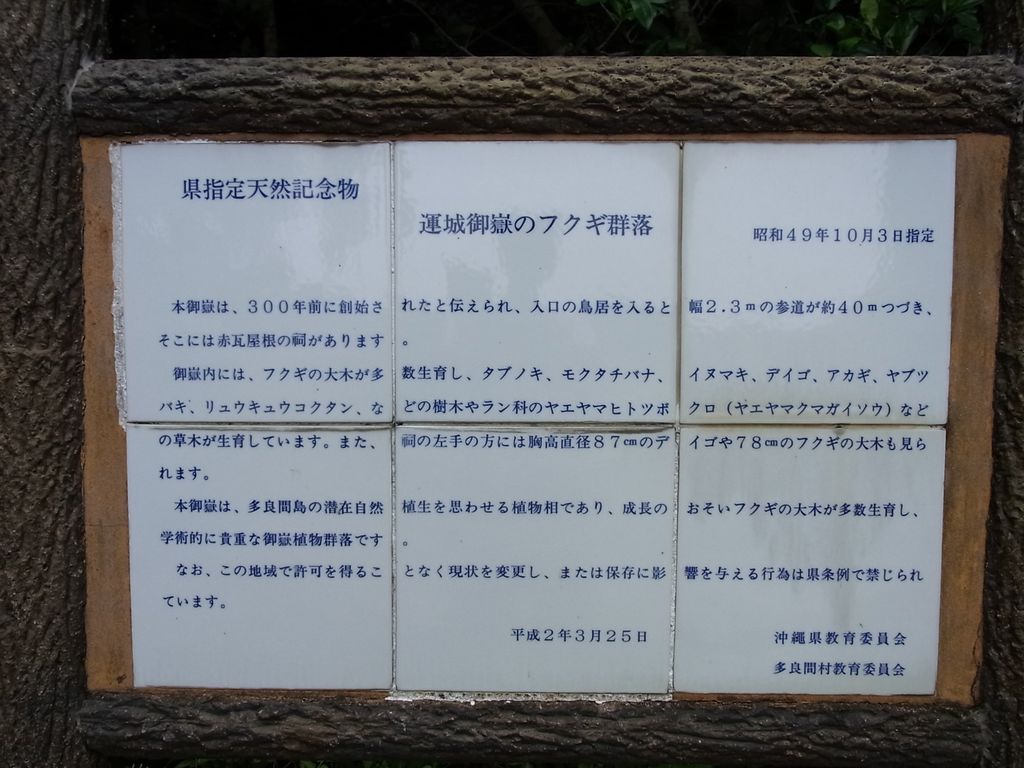 県指定天然記念物
運城御嶽のフクギ群落
昭和49年10月3日指定
本御嶽は、300年前に創始されたと伝えられ、入口の鳥居を入ると幅2.3mの参道が約40mつづき、
そこには赤瓦屋根の祠があります。
御嶽内には、フクギの大木が多数生育し、タブノキ、モクタチバナ、イヌマキ、デイゴ、アカギ、ヤブツ
バキ、リュウキュウコクタン、などの樹木やラン科のヤエヤマヒトツボクロ(ヤエヤマクマガイソウ)など
の草木が生育しています。また、祠の左手の方には胸高直径87cmのデイゴや78cmのフクギの大木も見ら
れます。
本御嶽は、多良間島の潜在自然植生を思わせる植物相であり、成長のおそいフクギの大木が多数生育し、
学術的に貴重な御嶽植物群落です。
なお、この地域で許可を得ることなく現状を変更し、または保存に影響を与える行為は県条例で禁じられ
ています。
平成2年3月25日
沖縄県教育委員会
多良間村教育委員会